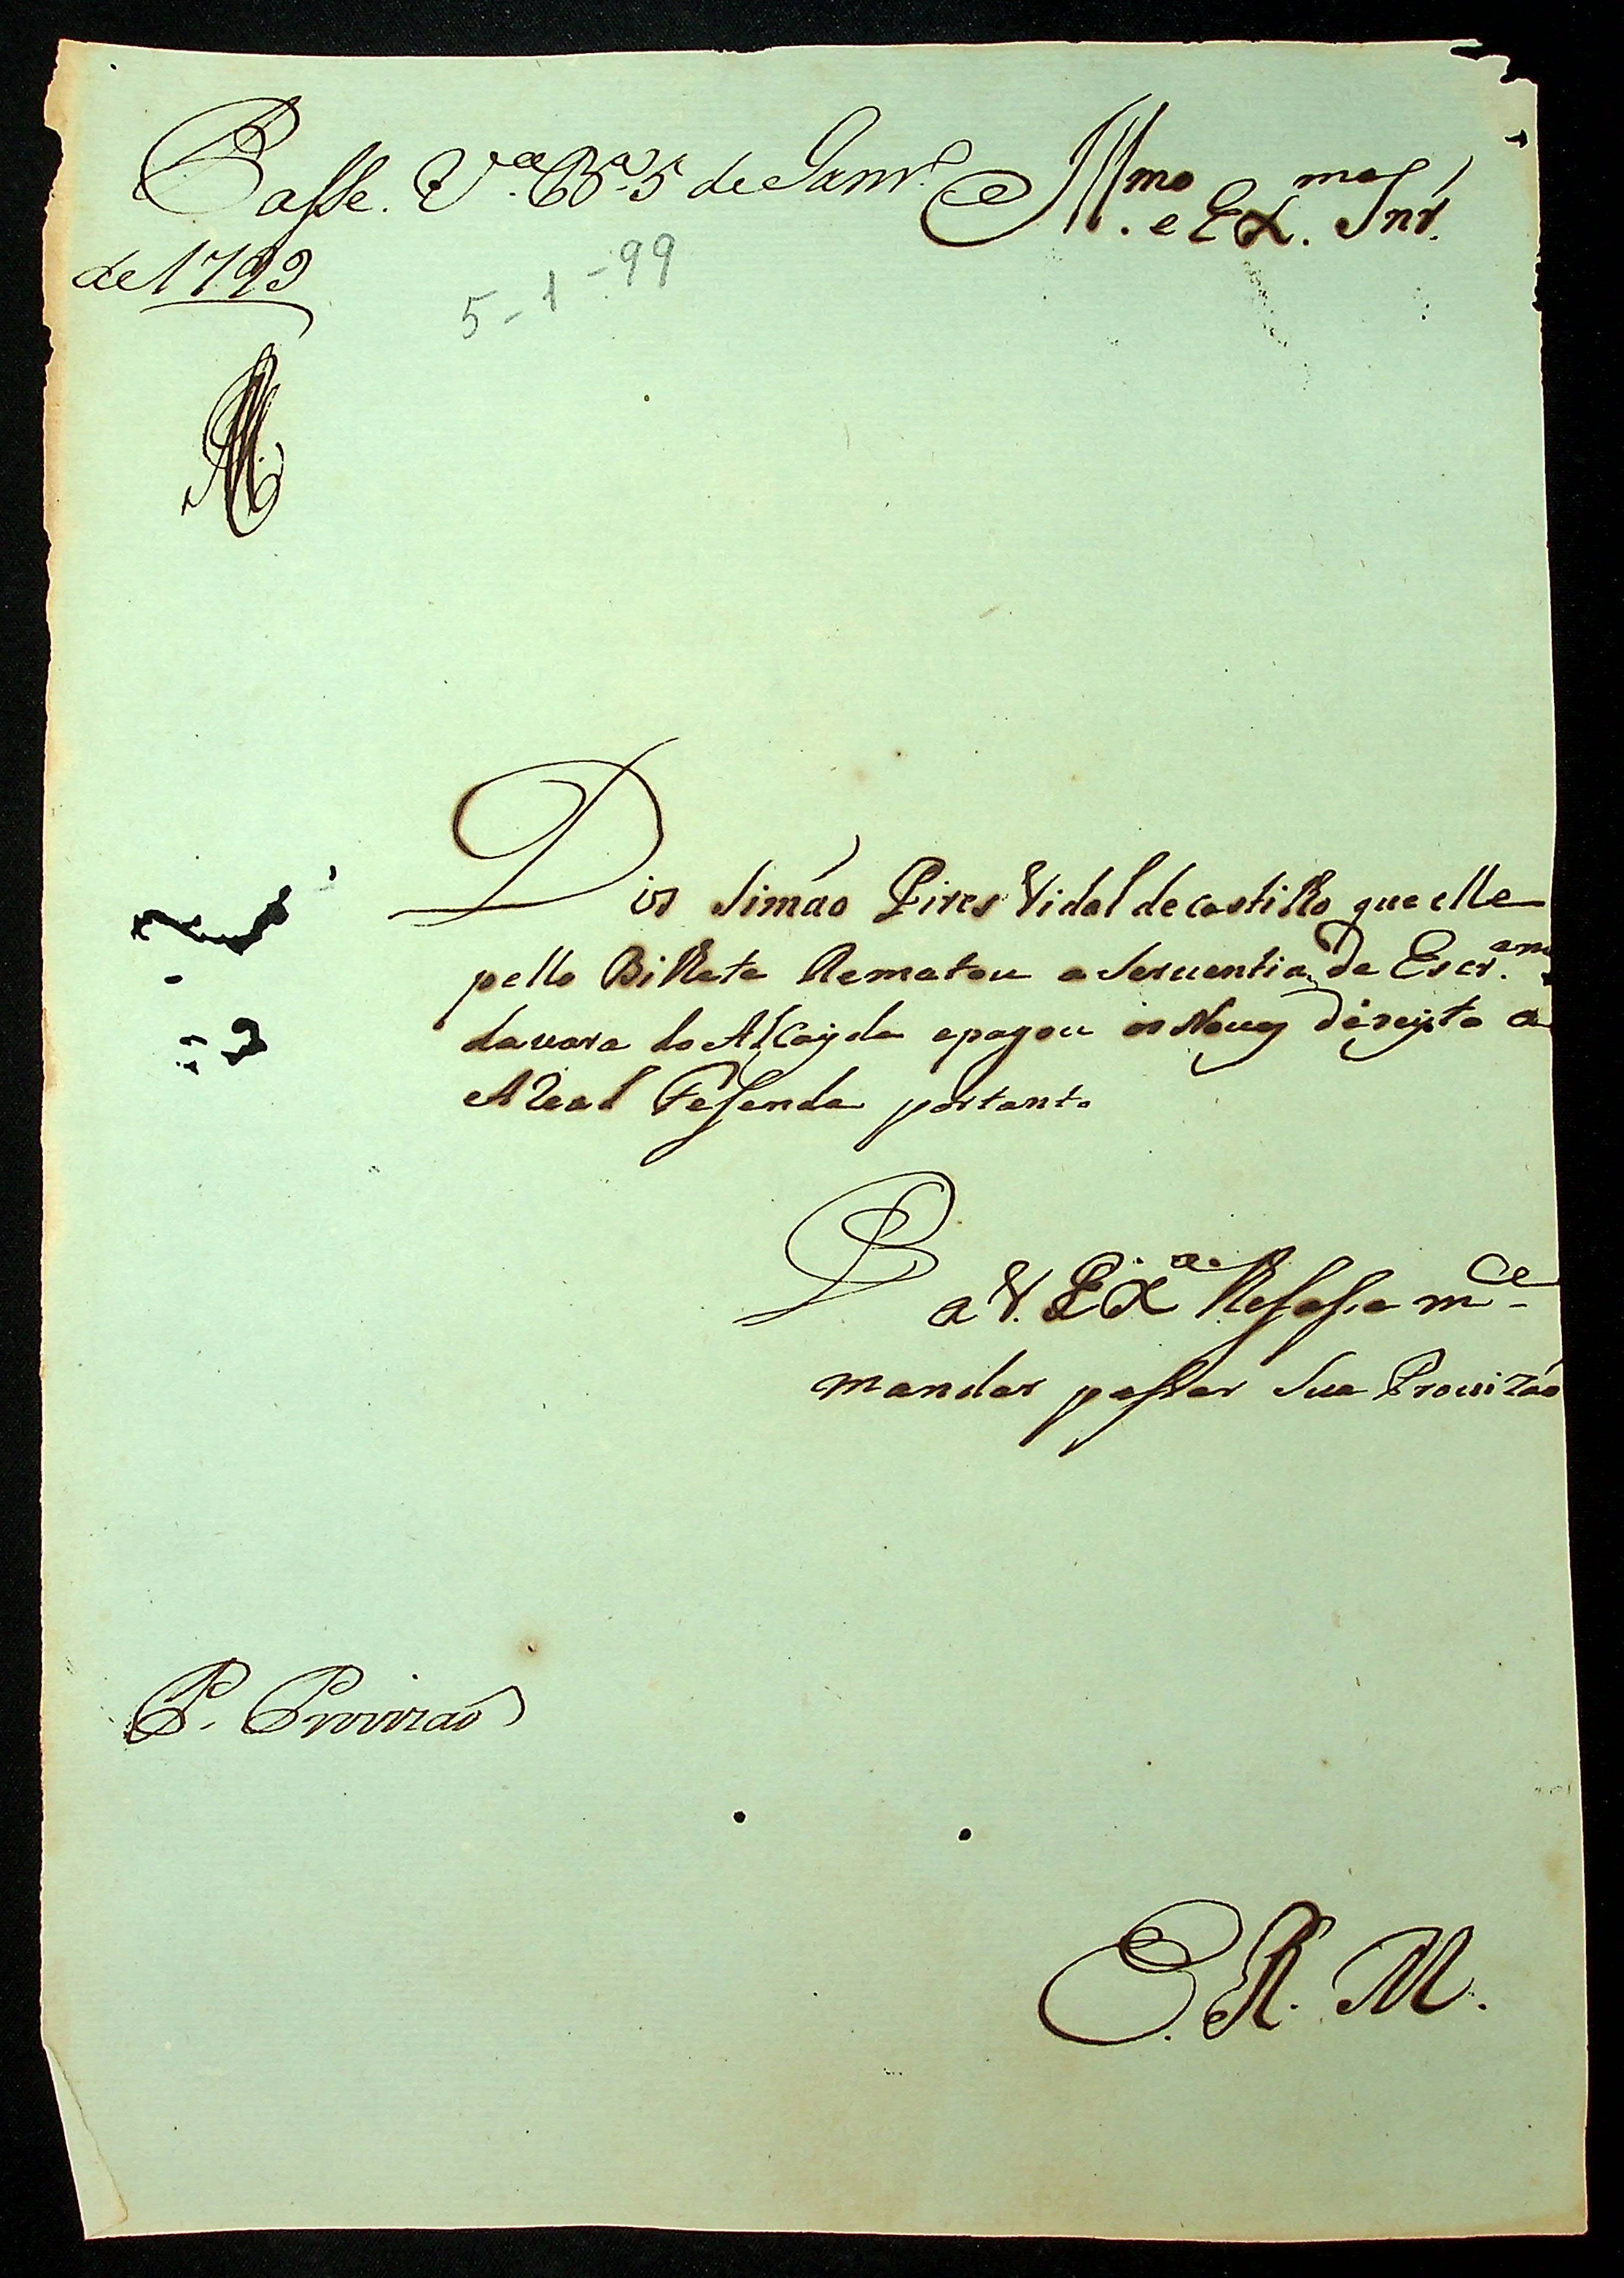 Passe. V.ª B.ª 5 de Janr.º
de 1799
5-1-99
Illmo. e Ex.mo Snr.
Dis Simaõ Pires Vidal de Castilho que elle
pello Bilhete Rematou a Seruentia de Escr.am
da uara do Alcayde e pagou os Nouos Direyto a
A Real Fasenda portanto
P
a V. Exª lhe fassa m.ce
mandar passar Sua Prouizaõ
P. Provizaõ
E. R. M.